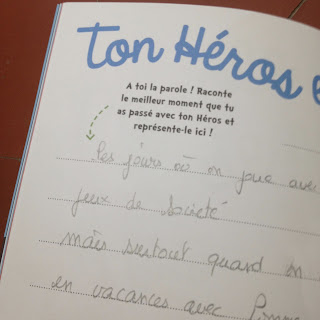 ton Héros
A toi la parole ! Raconte
le meilleur moment que tu
as passé avec ton Héros et
représente-le ici !
Les jours où on joue avec
jeux de Société
mais surtout quand on
en vacances avec